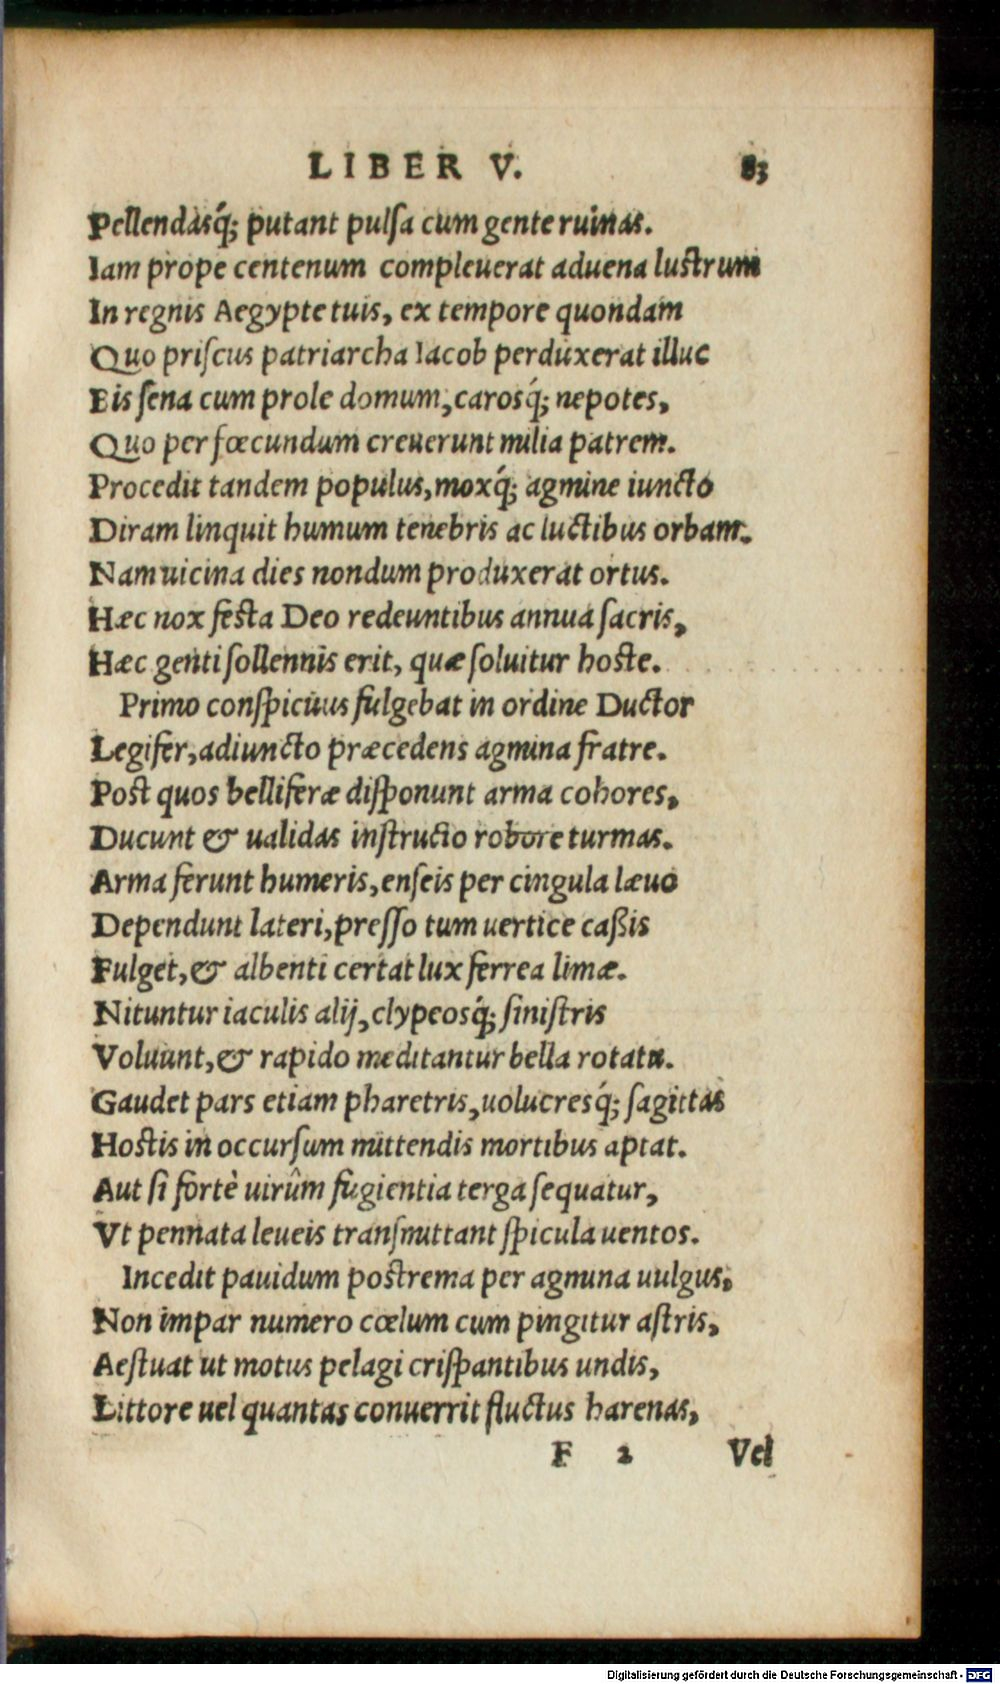 LIBER V. 83
Pellendasq́; putant pulſa cum gente ruinas.
Iam prope centenum compleuerat aduena luſtrum
In regnis Aegypte tuis, ex tempore quondam
Quo priſcus patriarcha Iacob perduxerat illuc
Bis ſena cum prole domum, carosq́; nepotes,
Quo per fœcundum creuerunt milia patrem.
Procedit tandem populus, moxq́; agmine iuncto
Diram linquit humum tenebris ac luctibus orbam.
Nam uicina dies nondum produxerat ortus.
Hæc nox feſta Deo redeuntibus annua ſacris,
Hæc genti ſollennis erit, quæ ſoluitur hoſte.
Primo conſpicuus fulgebat in ordine Ductor
Legifer, adiuncto præcedens agmina fratre.
Poſt quos belliferæ diſponunt arma cohores,
Ducunt & ualidas inſtructo robore turmas.
Arma ferunt humeris, enſeis per cingula læuo
Dependunt lateri, preſſo tum uertice caßis
Fulget, & albenti certat lux ferrea limæ.
Nituntur iaculis alij, clypeosq́; ſiniſtris
Voluunt, & rapido meditantur bella rotatu.
Gaudet pars etiam pharetris, uolucresq́; ſagittas
Hoſtis in occurſum mittendis mortibus aptat.
Aut ſi fortè uirûm fugientia terga ſequatur,
Vt pennata leueis tranſmittant ſpicula uentos.
Incedit pauidum poſtrema per agmina uulgus,
Non impar numero cœlum cum pingitur aſtris,
Aeſtuat ut motus pelagi criſpantibus undis,
Littore uel quantas conuerrit fluctus harenas,
F 2 Vel
Digitalisierung gefördert durch die Deutsche Forschungsgemeinschaft - DFG